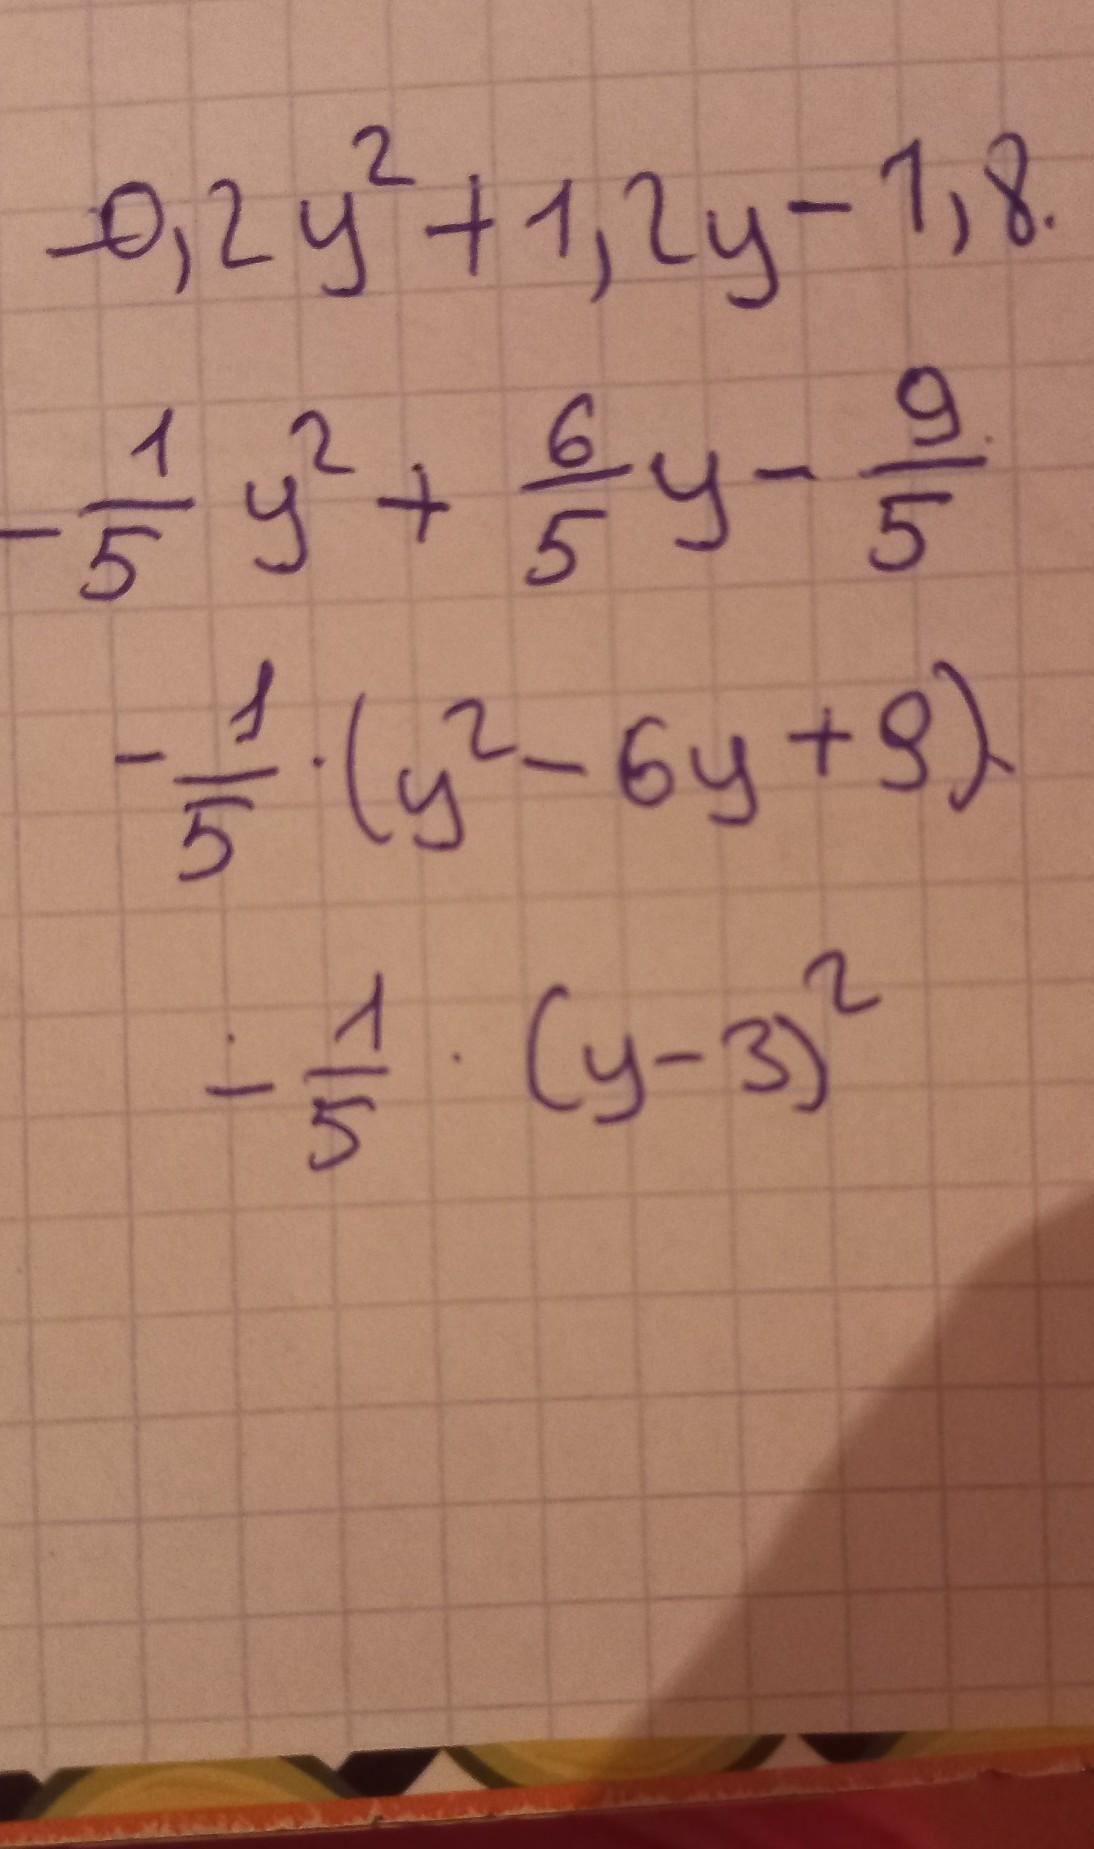 -0,2y² + 1,2y - 1,8.
- 1/5 y² + 6/5 y - 9/5
- 1/5 · (y² - 6y + 9)
- 1/5 · (y - 3)²